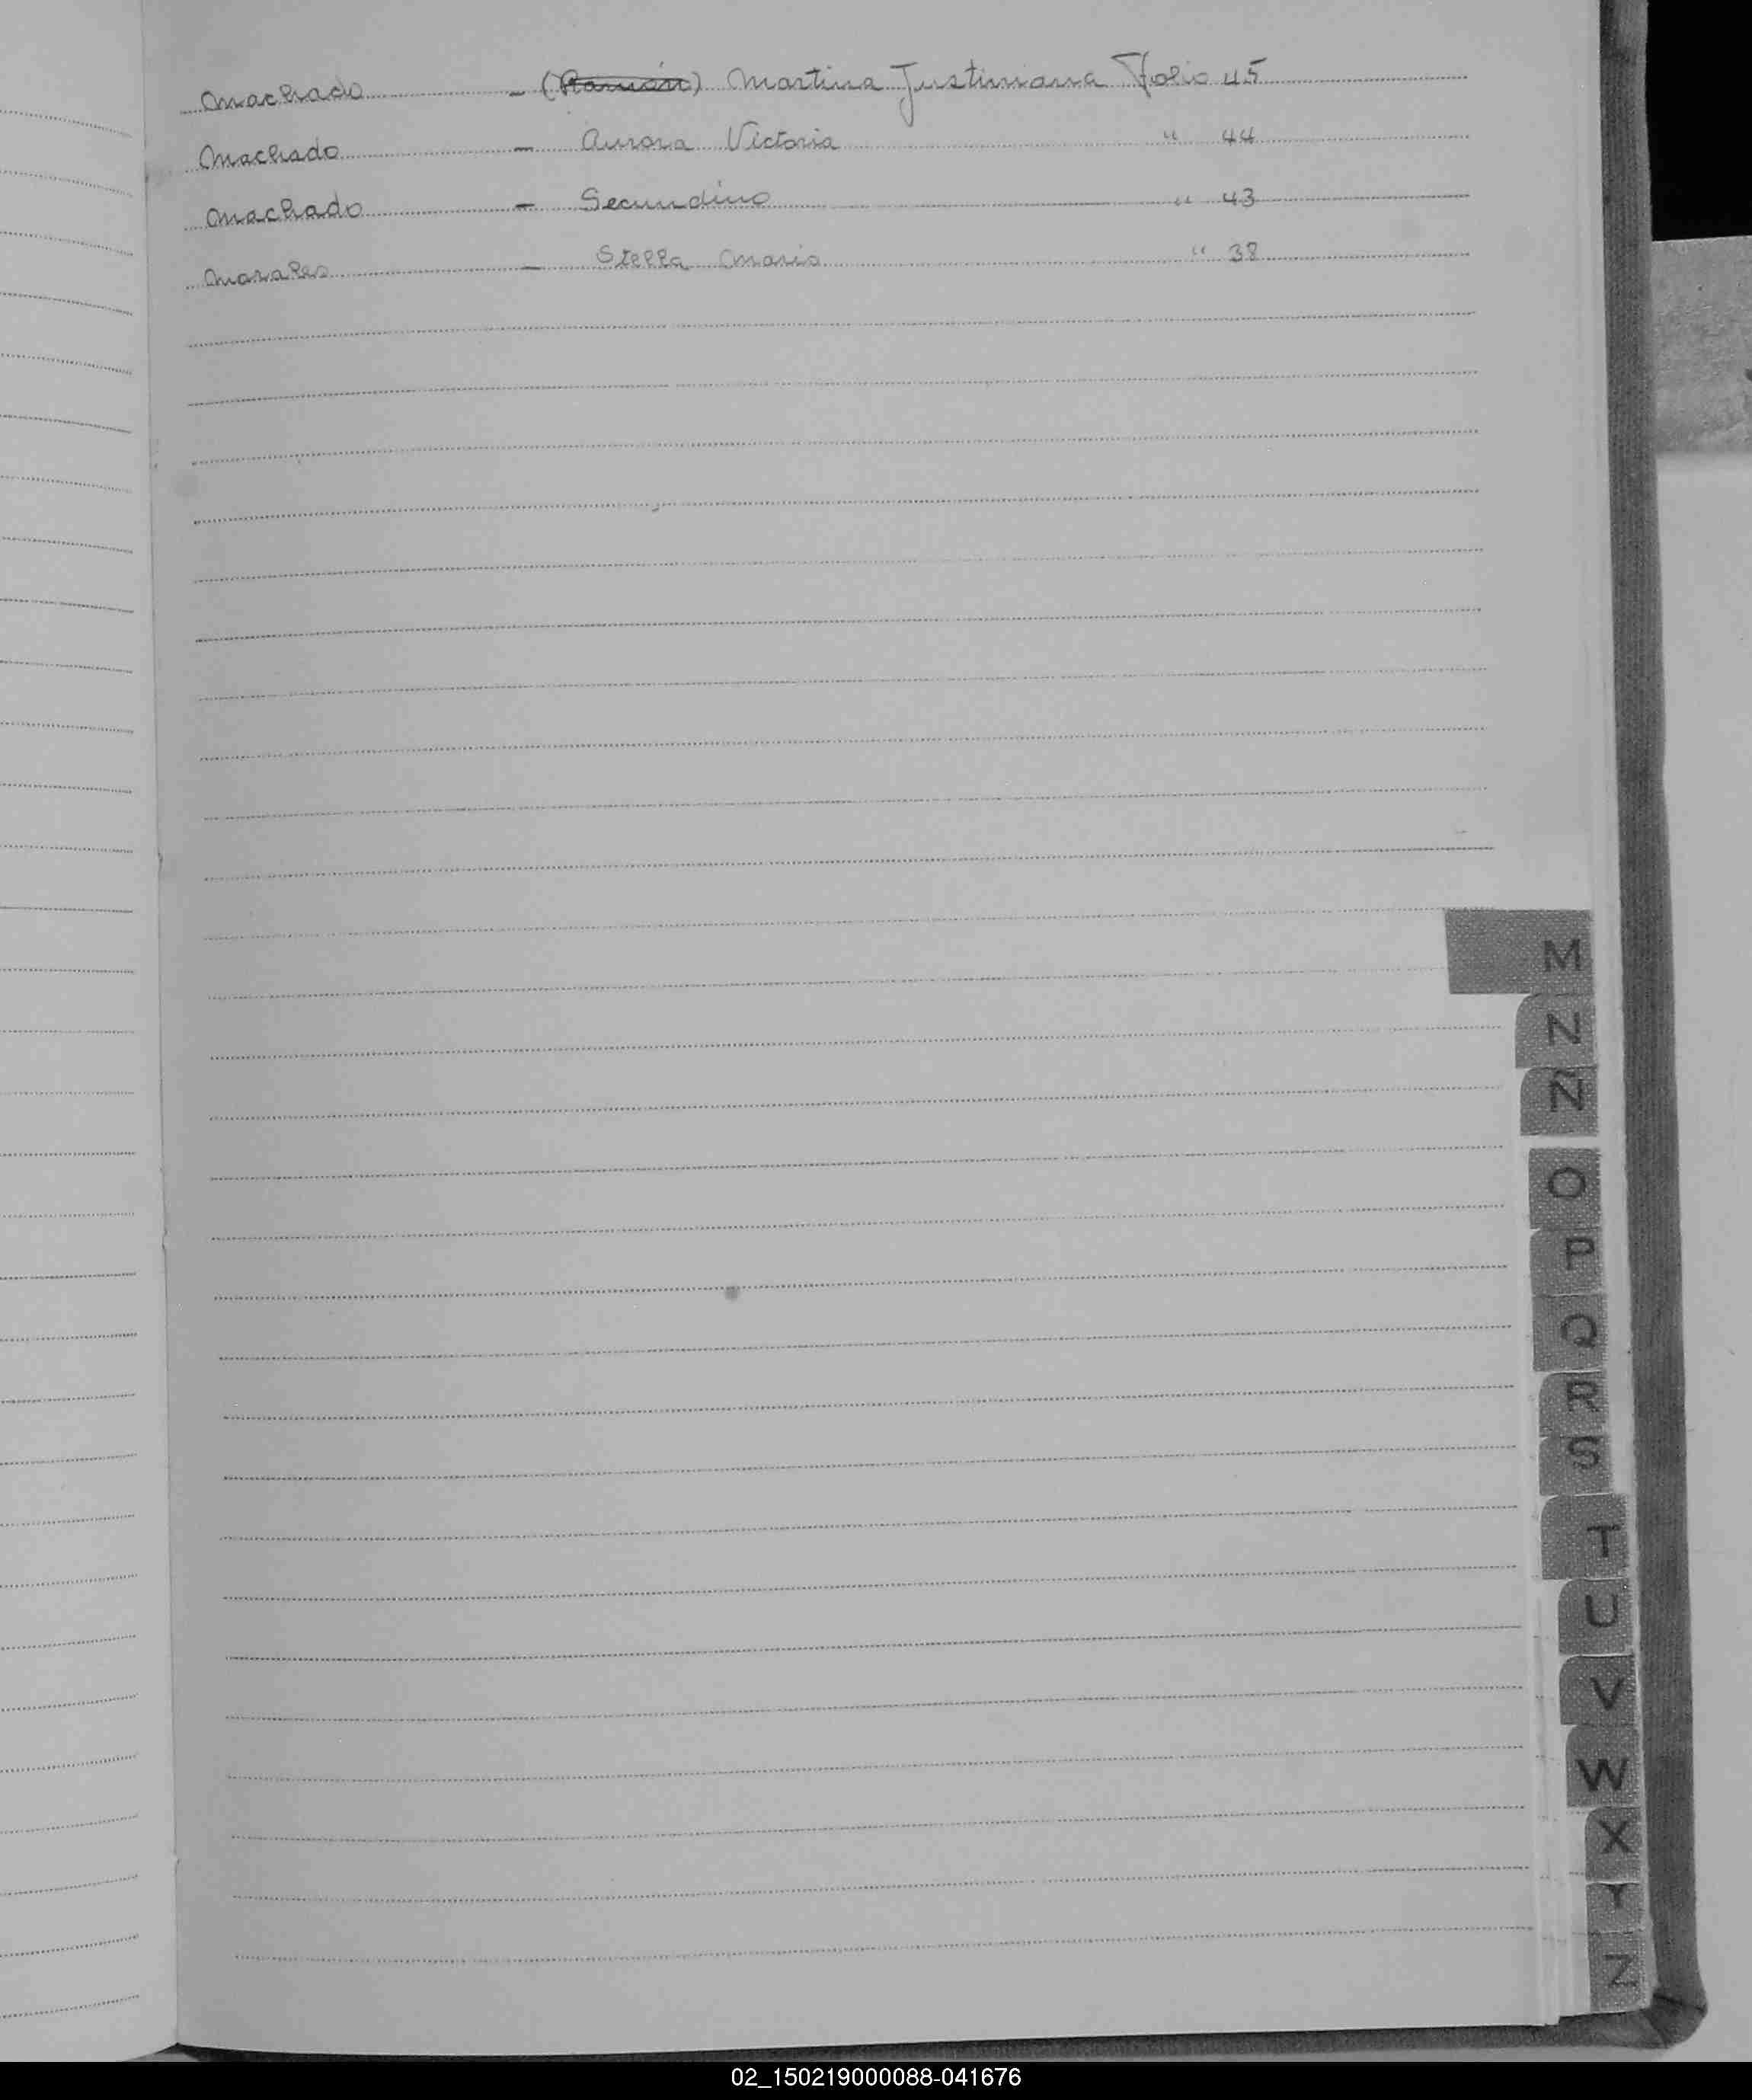 Machado - (Ramón) Martina Justiniana Folio 45
Machado - Aurora Victoria " 44
Machado - Secundino " 43
Morales - Stella Maris " 38
M
N
Ñ
O
P
Q
R
S
T
U
V
W
X
Y
Z
02_150219000088-041676